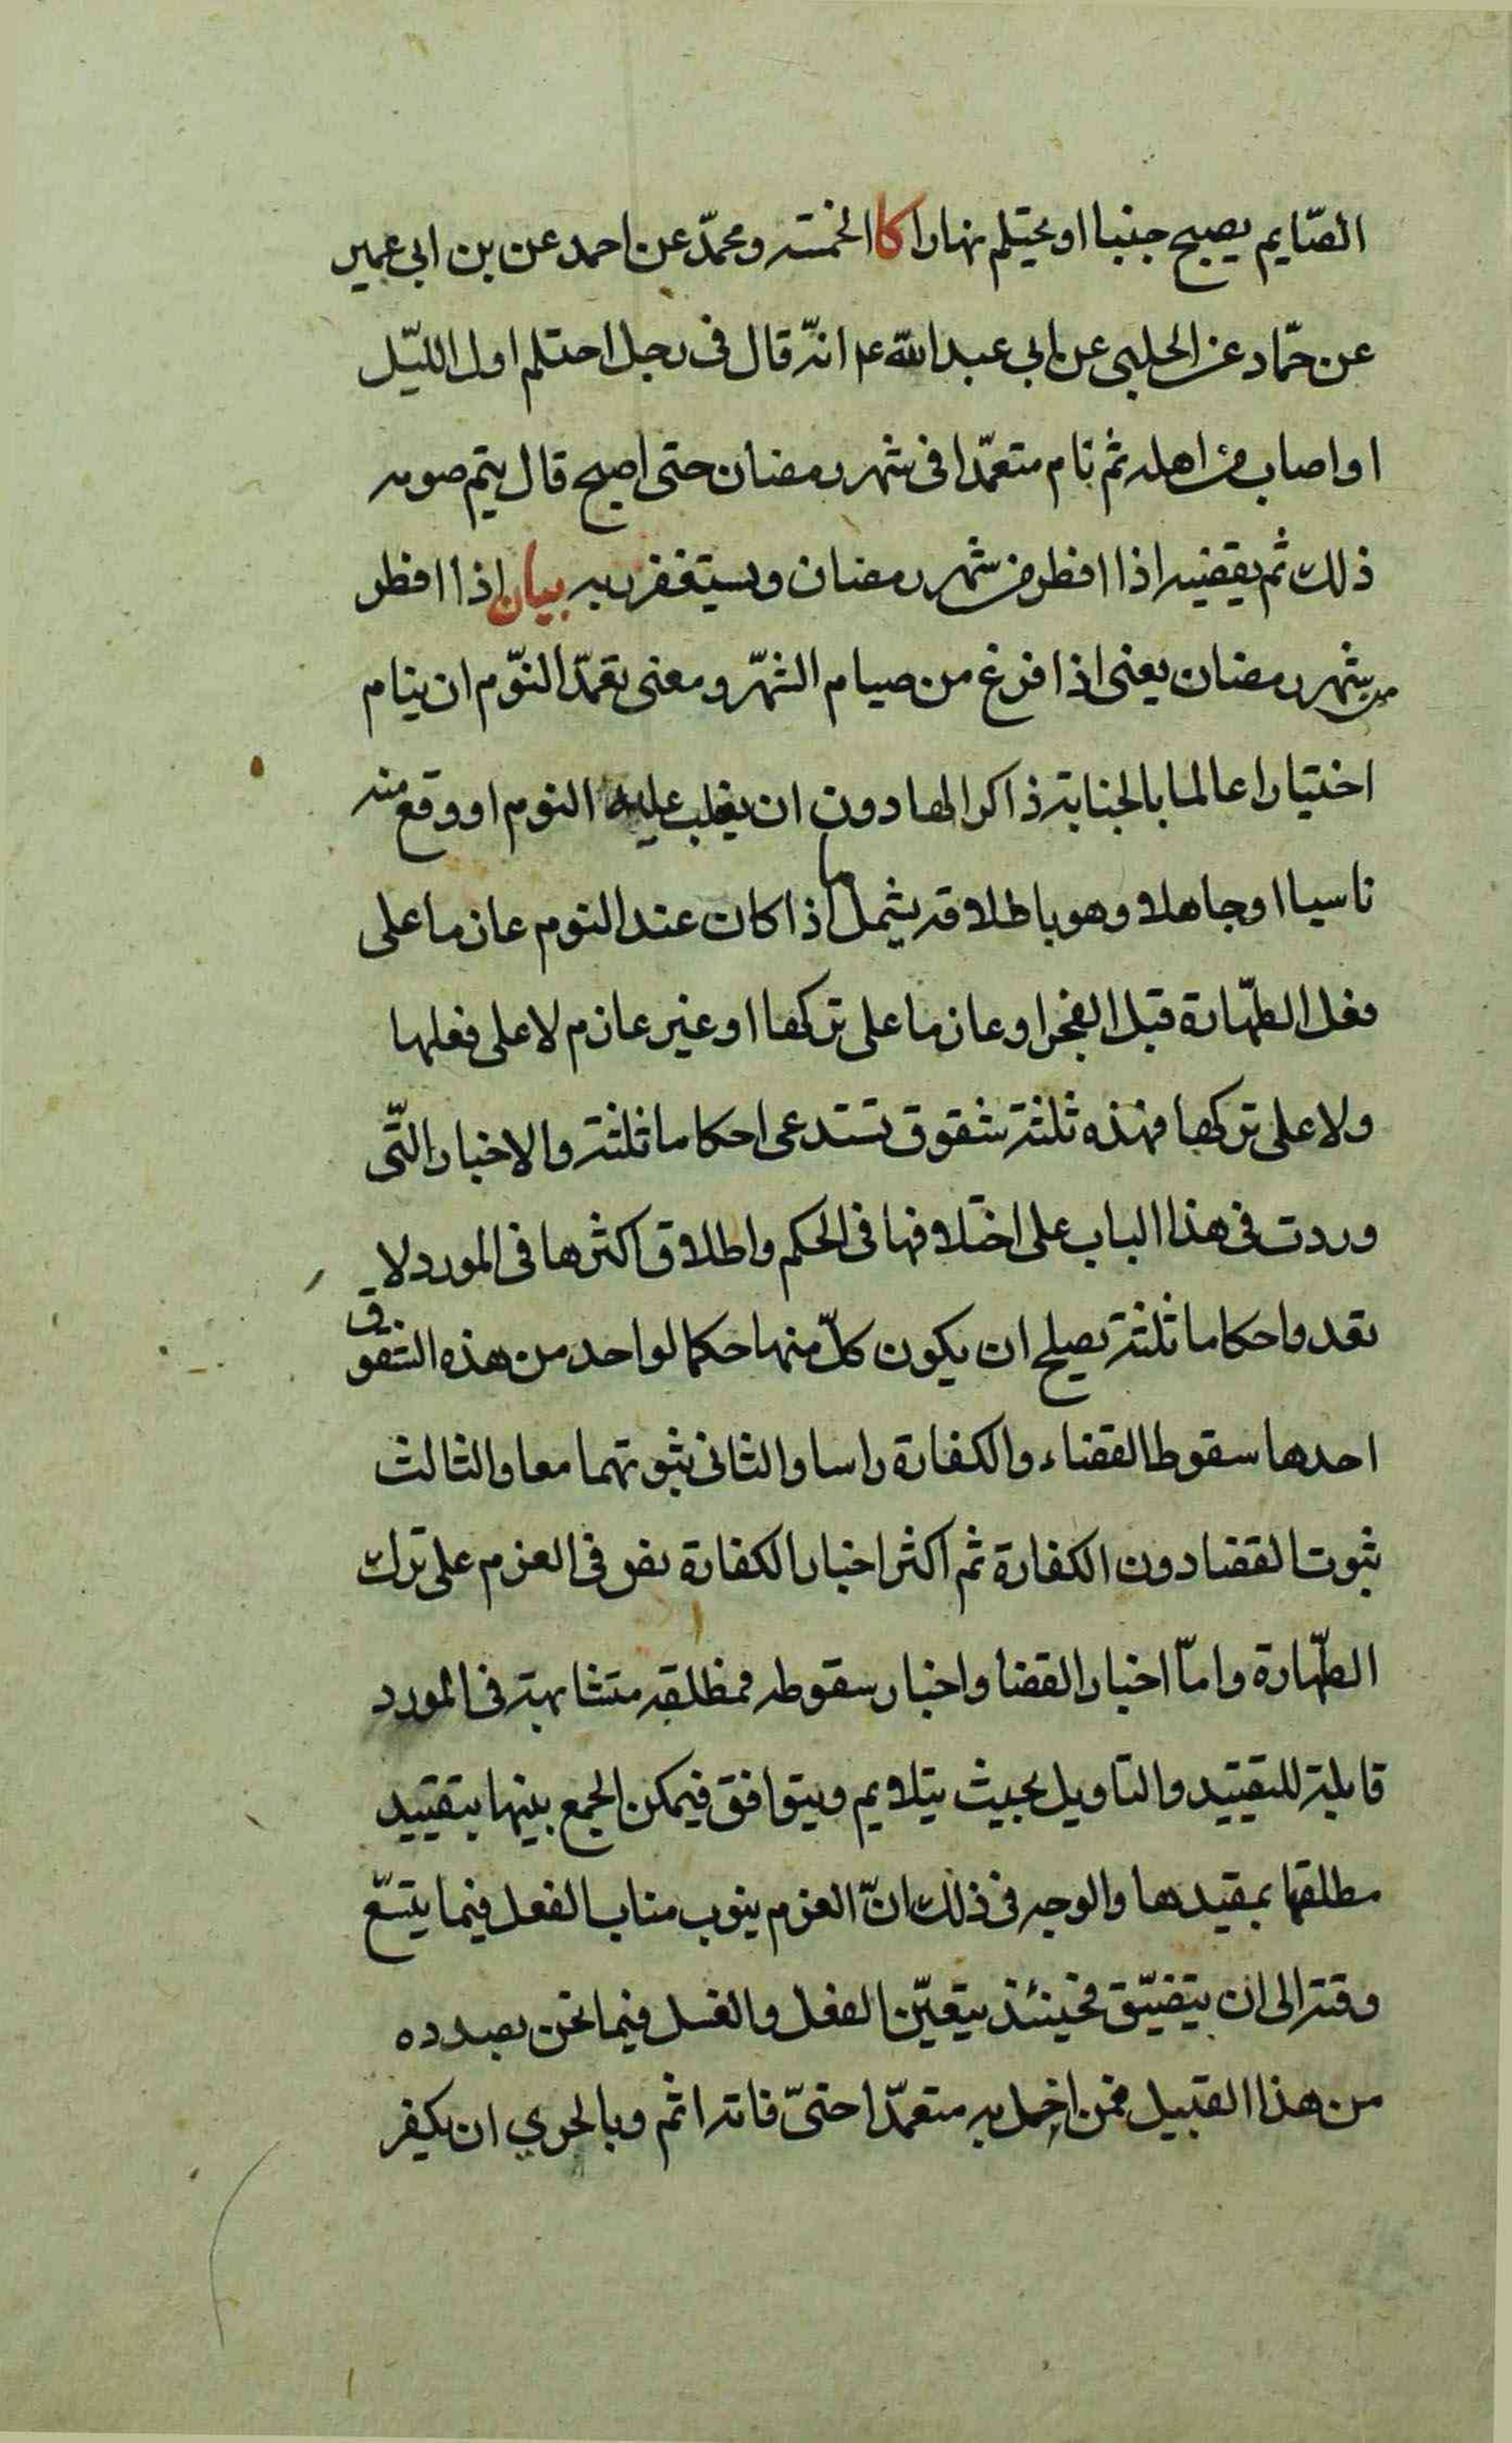 الصّايم يصبح جنبا او يحتلم نهارا كا الخمسة ومحمّد عن احمد عن بن ابى عمير
عن حمّاد عن الحلبى عن ابى عبد الله ع انّه قال فى رجل احتلم اول اللّيل
او اصاب من اهله ثم نام متعمّدا فى شهر رمضان حتى اصبح قال يتم صومه
ذلك ثم يقضيه اذا افطر من شهر رمضان ويستغفر ربه بيان اذا افطر
من شهر رمضان يعنى اذا فرغ من صيام الشّهر ومعنى تعمّد النّوم ان ينام
اختيارا عالما بالجنابة ذاكرا لها دون ان يغلب عليه النوم او وقع منه
ناسيا او جاهلا وهو باطلاقه يشمل ما اذا كان عند النوم عازما على
فعل الطّهارة قبل الفجر او عازما على تركها او غير عازم لا على فعلها
ولا على تركها فهذه ثلثة شقوق تستدعى احكاما ثلثة والاخبار الّتى
وردت فى هذا الباب على اختلافها فى الحكم واطلاق اكثرها فى المورد لا
تعدوا احكاما ثلثة يصلح ان يكون كلّ منها حكما لواحد من هذه الشقوق
احدها سقوط القضاء والكفارة راسا والثانى ثبوتهما معا والثالث
ثبوت القضا دون الكفارة ثم اكثر اخبار الكفارة نص فى العزم على ترك
الطّهارة وامّا اخبار القضا واخبار سقوطه فمطلقة متشابهة فى المورد
قابلة للتقييد والتاويل بحيث يتلايم ويتوافق فيمكن الجمع بينها بتقييد
مطلقها بمقيدها والوجه فى ذلك انّ العزم ينوب مناب الفعل فيما يتسّع
وقته الى ان يتضيّق فحينئذ يتعيّن الفعل والغسل فيما نحن بصدده
من هذا القبيل فمن اخل به متعمّدا حتىّ فاته اثم وبالحري ان يكفر